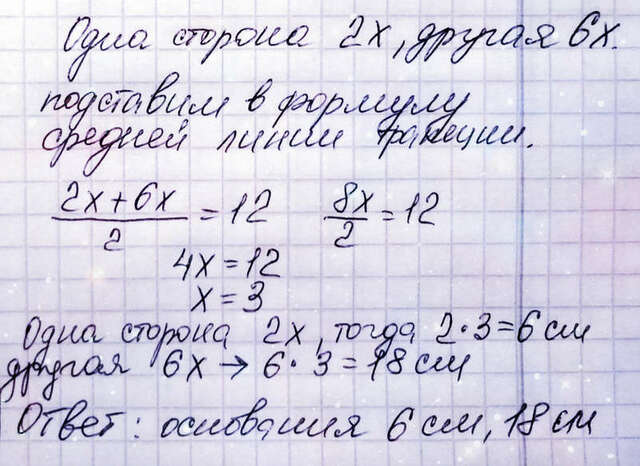 Одна сторона 2x, другая 6x.
подставим в формулу
средней линии трапеции.
(2x+6x)/2 = 12 8x/2 = 12
4x = 12
x = 3
Одна сторона 2x, тогда 2·3=6 см
другая 6x → 6·3=18 см
Ответ: основания 6 см, 18 см